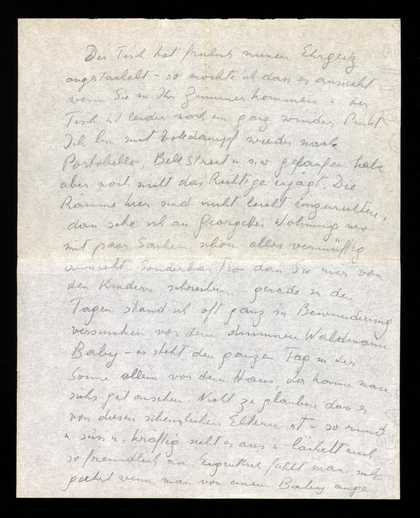 Der Tisch hat früher meinen Ehrgeiz
angestachelt - so möchte ich dass es aussieht
wenn Sie in Ihr Zimmer kommen u. der
Tisch ist leider noch ein ganz wunder Punkt
Ich bin mit Volldampf wieder nach
Portobello, Bell Street u.s.w gelaufen habe
aber noch nicht das Richtige erjagt. Die
Räume hier sind nicht leicht einzurichten,
dann sehe ich an Georgettes Wohnung wie
mit paar Sachen schon alles vernünftig
aussieht. Sonderbar war dass Sie mir von
den Kindern schreiben gerade in den
Tagen stand ich oft ganz in Bewunderung
versunken vor dem Waldmann
Baby - es steht den ganzen Tag in der
Sonne allein vor dem Haus, da konnte man
sichs gut ansehen. Nicht zu glauben dass es
von diesen scheusslichen Eltern ist - so rund
u. süss u. kräftig sieht es aus u. lächelt auch
so freundlich an. Eigentlich fühlt man sich
geehrt wenn man von einem Baby ange